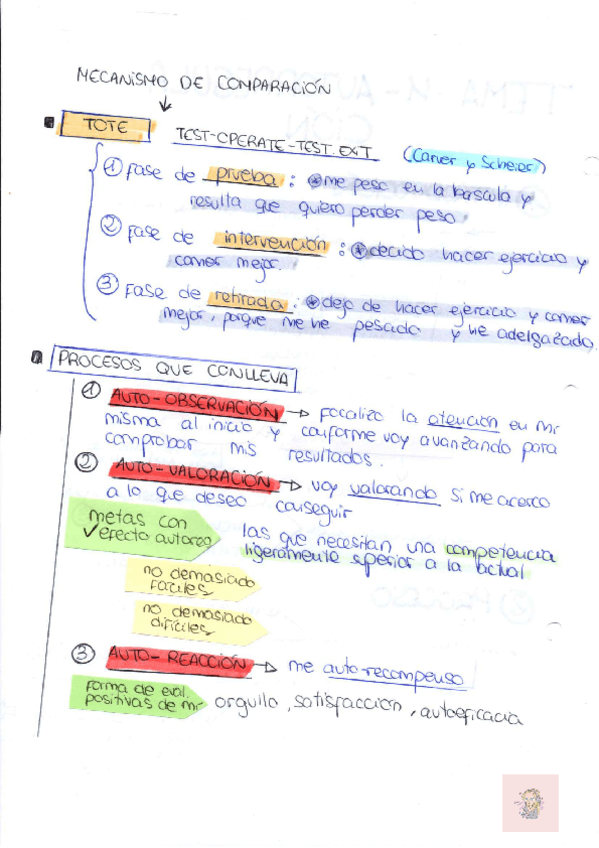 MECANISMO DE COMPARACIÓN
TOTE TEST-OPERATE-TEST.EXIT (Carver y Scheier)
① Fase de prueba: me peso en la bascula y
resulta que quiero perder peso.
② Fase de intervención: decido hacer ejercicio y
comer mejor.
③ Fase de retirada: dejo de hacer ejercicio y comer
mejor, porque me he pesado y he adelgazado.
PROCESOS QUE CONLLEVA
① AUTO-OBSERVACIÓN → focalizo la atención en mi
misma al inicio y conforme voy avanzando para
comprobar mis resultados.
② AUTO-VALORACIÓN → voy valorando si me acerco
a lo que deseo conseguir
metas con
✓efecto autoreg
las que necesitan una competencia
ligeramente superior a la actual
no demasiado
fáciles
no demasiado
difíciles
③ AUTO-REACCIÓN → me auto-recompenso
forma de eval.
positivas de mi
orgullo, satisfacción, autoeficacia